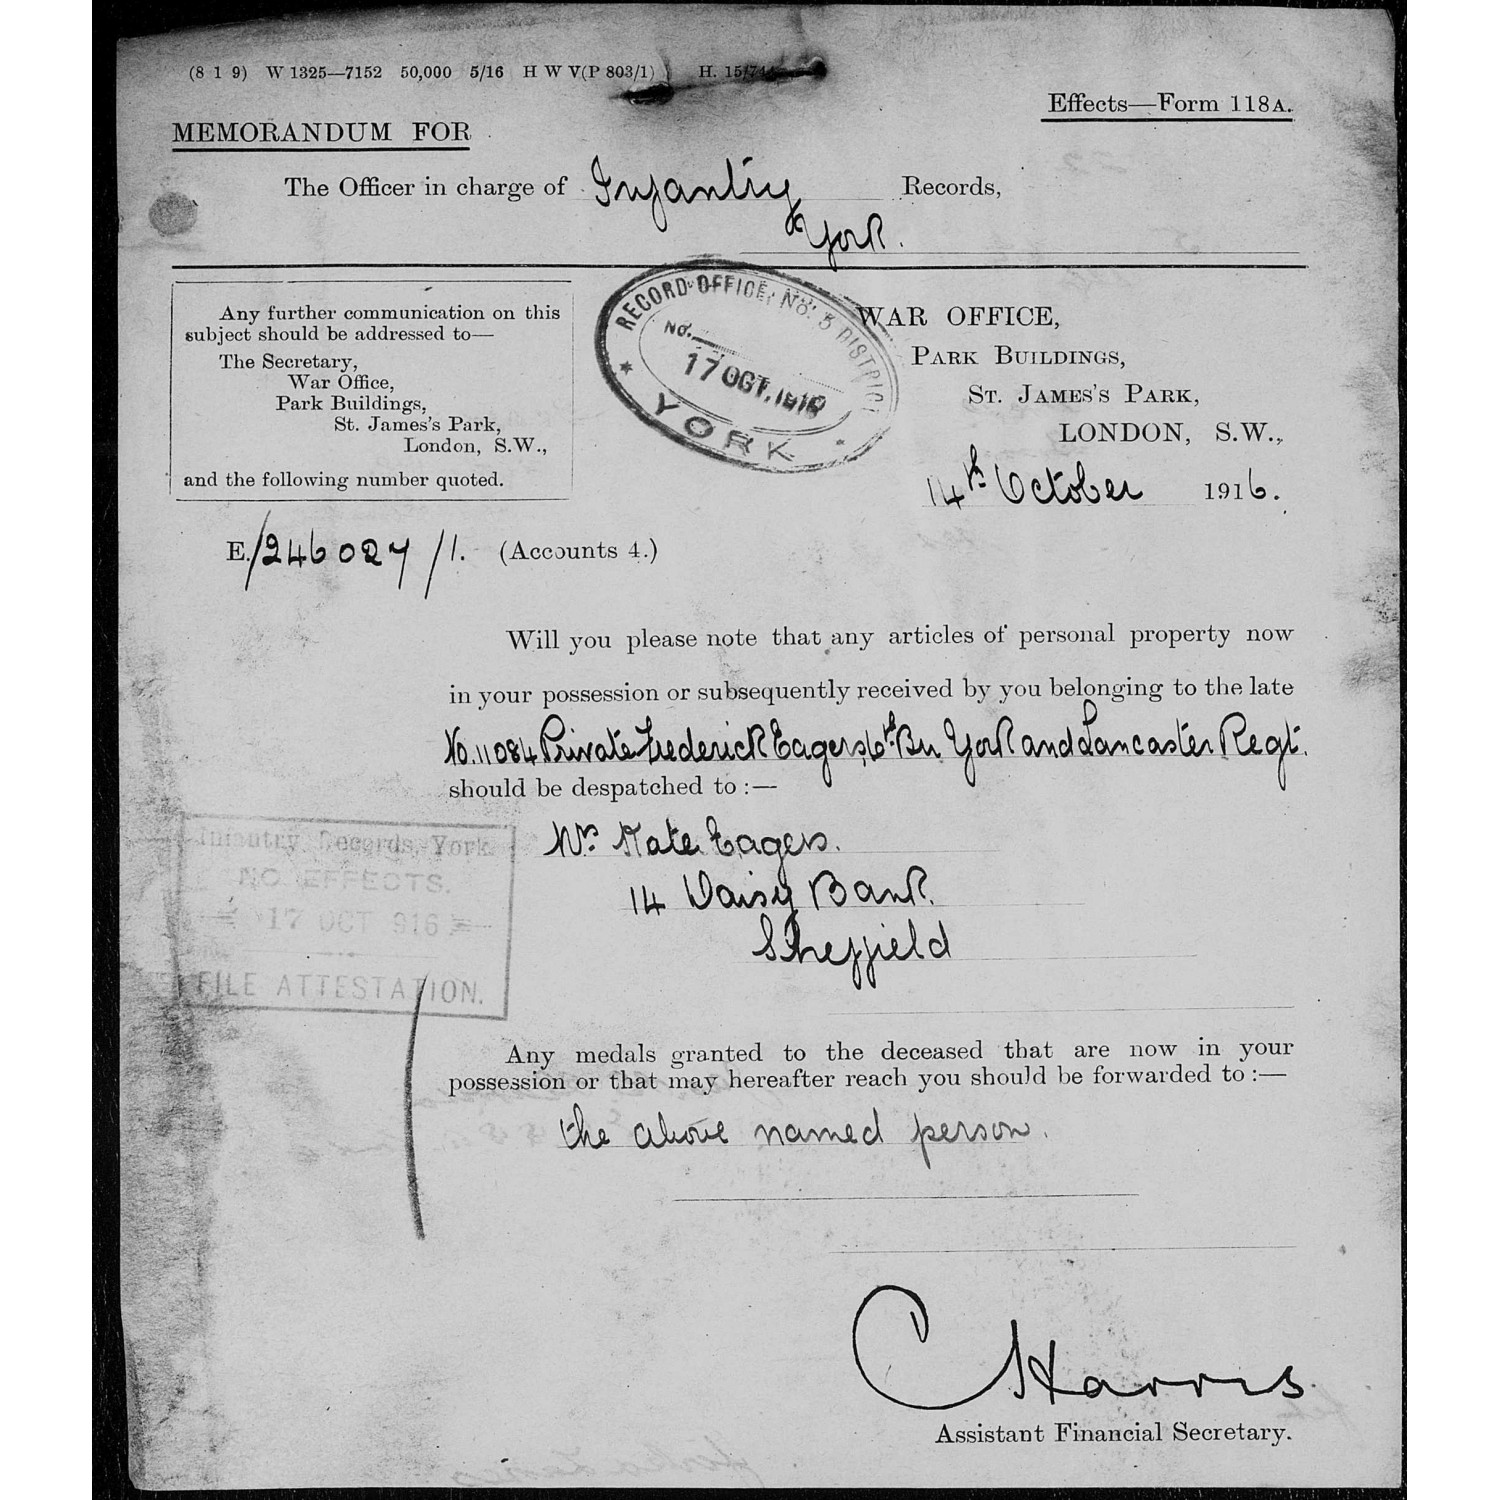 (8 1 9) W 1325—7152 50,000 5/16 H W V(P 803/1) H. 15/
Effects—Form 118A.
MEMORANDUM FOR
The Officer in charge of Infantry Records,
York.
RECORD OFFICE, No. 5 DISTRICT
No.
17 OCT. 1916
* YORK *
Any further communication on this
subject should be addressed to—
The Secretary,
War Office,
Park Buildings,
St. James's Park,
London, S.W.,
and the following number quoted.
WAR OFFICE,
PARK BUILDINGS,
ST. JAMES'S PARK,
LONDON, S.W.,
14th October 1916.
E./246027/1. (Accounts 4.)
Will you please note that any articles of personal property now
in your possession or subsequently received by you belonging to the late
No. 11084 Private Frederick Eagers, 6th Bn York and Lancaster Regt.
should be despatched to :—
Infantry Records, York.
NO EFFECTS.
17 OCT 916
FILE ATTESTATION.
Mrs Kate Eagers.
14 Daisy Bank.
Sheffield
Any medals granted to the deceased that are now in your
possession or that may hereafter reach you should be forwarded to :—
the above named person.
C Harris
Assistant Financial Secretary.